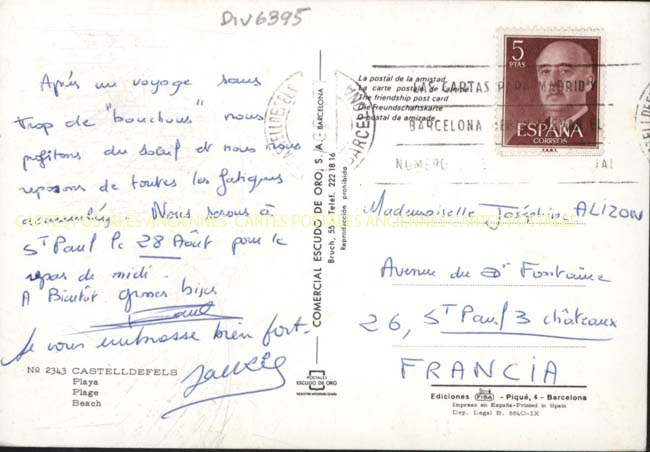 Div6395
Après un voyage sans
trop de "bouchons" nous
profitons du soleil et nous nous
reposons de toutes les fatigues
accumulées. Nous serons à
ST Paul le 28 Août pour le
repas de midi.
A Bientôt grosses bises
Je vous embrasse bien fort.
No 2343 CASTELLDEFELS
Playa
Plage
Beach
COMERCIAL ESCUDO DE ORO, S. A. BARCELONA
Bruch, 55 - Telef. 222 18 16
Reproducción prohibida
POSTALES
ESCUDO DE ORO
La postal de la amistad
La carte postale de l'amitié
The friendship post card
Die Freundschaftskarte
O postal da amizade
CASTELLDEFELS
BARCELONA
LAS CARTAS PARA MADRID Y
BARCELONA
NUMERO
5
PTAS
ESPAÑA
CORREOS
Mademoiselle Joséphine ALIZON
Avenue du Dr Fontaine
26, ST Paul 3 châteaux
FRANCIA
Ediciones FISA - Piqué, 4 - Barcelona
Impreso en España-Printed in Spain
Dep. Legal B. 8840-IX
CARTES POSTALES ANCIENNES CARTES POSTALES ANCIENNES CARTES POSTALES